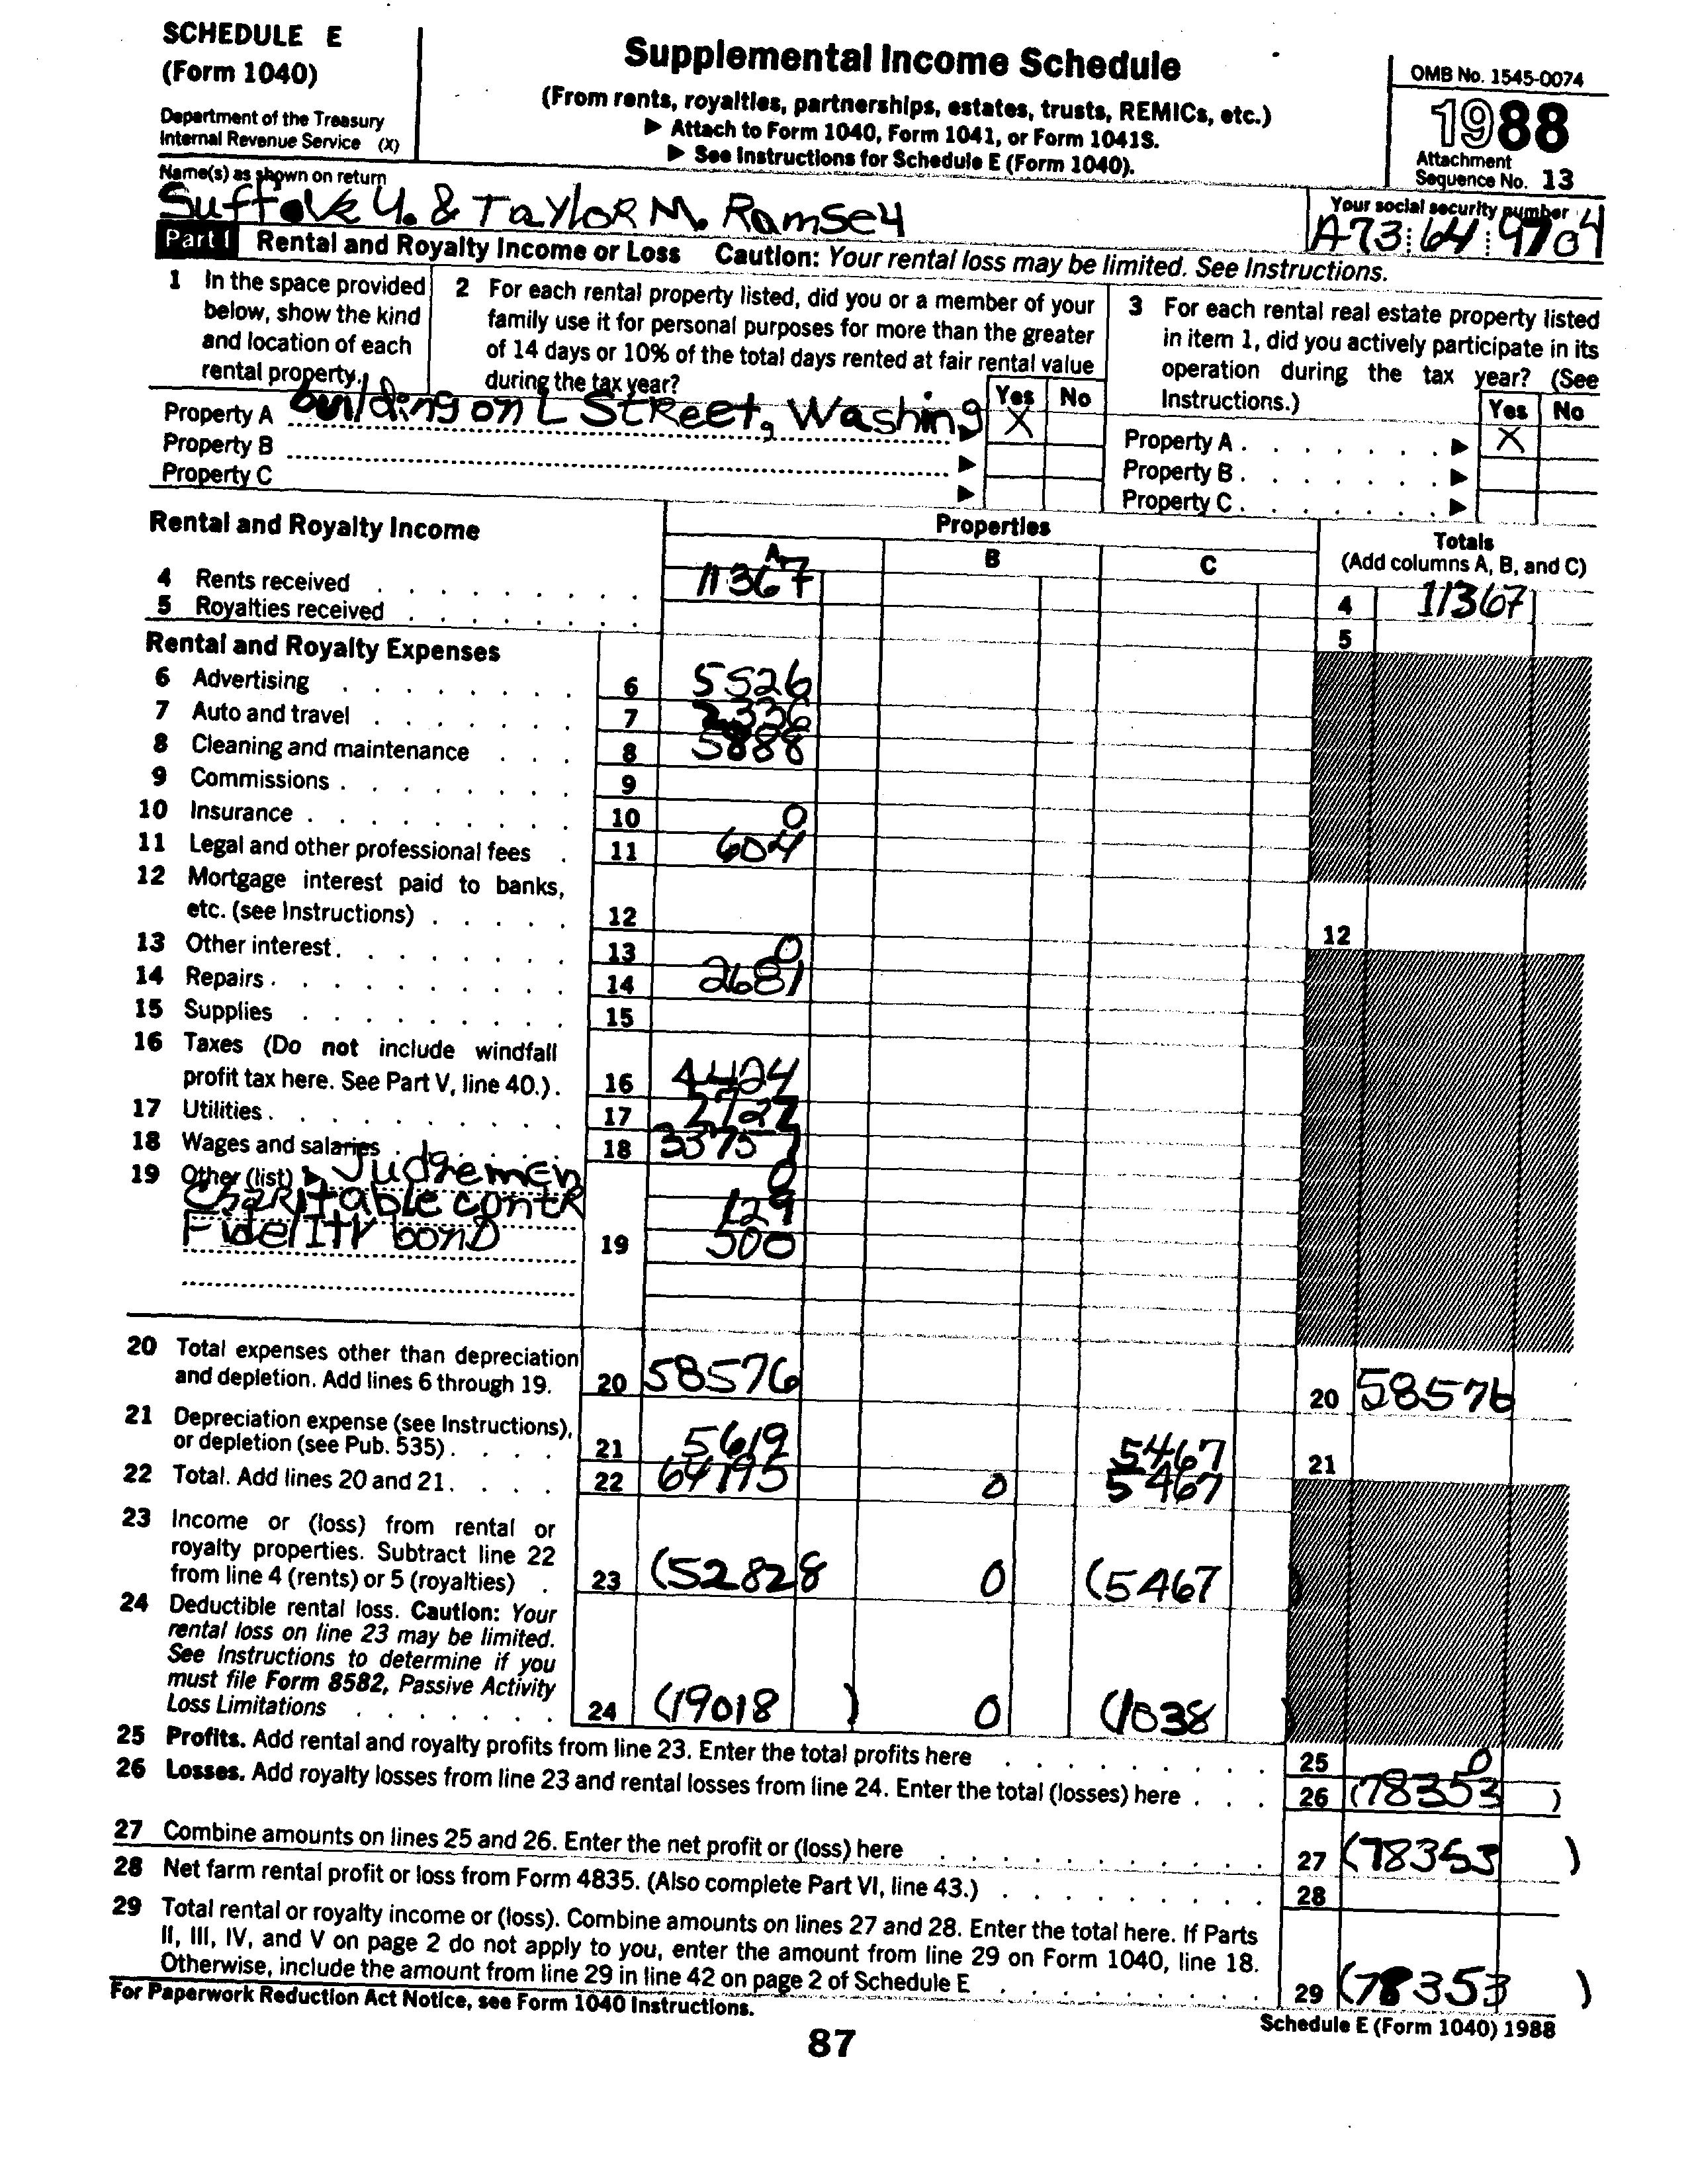 SCHEDULE E
(Form 1040)
Department of the Treasury
Internal Revenue Service (X)
Supplemental Income Schedule
(From rents, royalties, partnerships, estates, trusts, REMICs, etc.)
▶ Attach to Form 1040, Form 1041, or Form 1041S.
▶ See Instructions for Schedule E (Form 1040).
OMB No. 1545-0074
1988
Attachment
Sequence No. 13
Name(s) as shown on return
Suffolk Y. & Taylor M. Ramsey
Your social security number
A73 64 9704
Part I Rental and Royalty Income or Loss Caution: Your rental loss may be limited. See Instructions.
1 In the space provided
below, show the kind
and location of each
rental property.
2 For each rental property listed, did you or a member of your
family use it for personal purposes for more than the greater
of 14 days or 10% of the total days rented at fair rental value
during the tax year?
Yes No
3 For each rental real estate property listed
in item 1, did you actively participate in its
operation during the tax year? (See
Instructions.)
Yes No
Property A building on L Street, Washing ▶ X
Property B ▶
Property C ▶
Property A ▶ X
Property B ▶
Property C ▶
Rental and Royalty Income
Properties
A B C
Totals
(Add columns A, B, and C)
4 Rents received 11367 4 11367
5 Royalties received 5
Rental and Royalty Expenses
6 Advertising 6 5526
7 Auto and travel 7 2336
8 Cleaning and maintenance 8 5888
9 Commissions 9
10 Insurance 10 0
11 Legal and other professional fees 11 604
12 Mortgage interest paid to banks,
etc. (see Instructions) 12 12
13 Other interest 13 0
14 Repairs 14 2681
15 Supplies 15
16 Taxes (Do not include windfall
profit tax here. See Part V, line 40.) 16 4424
17 Utilities 17
18 Wages and salaries 18
19 Other (list) ▶ Judgemen 0
Charitable contr 129
Fidelity bond 19 500
20 Total expenses other than depreciation
and depletion. Add lines 6 through 19. 20 58576 20 58576
21 Depreciation expense (see Instructions),
or depletion (see Pub. 535) 21 5619 5467 21
22 Total. Add lines 20 and 21 22 64195 0 5467
23 Income or (loss) from rental or
royalty properties. Subtract line 22
from line 4 (rents) or 5 (royalties) 23 (52828 0 (5467 )
24 Deductible rental loss. Caution: Your
rental loss on line 23 may be limited.
See Instructions to determine if you
must file Form 8582, Passive Activity
Loss Limitations 24 (19018 ) 0 (1838 )
25 Profits. Add rental and royalty profits from line 23. Enter the total profits here 25 0
26 Losses. Add royalty losses from line 23 and rental losses from line 24. Enter the total (losses) here 26 (78353 )
27 Combine amounts on lines 25 and 26. Enter the net profit or (loss) here 27 (78353 )
28 Net farm rental profit or loss from Form 4835. (Also complete Part VI, line 43.) 28
29 Total rental or royalty income or (loss). Combine amounts on lines 27 and 28. Enter the total here. If Parts
II, III, IV, and V on page 2 do not apply to you, enter the amount from line 29 on Form 1040, line 18.
Otherwise, include the amount from line 29 in line 42 on page 2 of Schedule E 29 (78353 )
For Paperwork Reduction Act Notice, see Form 1040 Instructions.
Schedule E (Form 1040) 1988
87